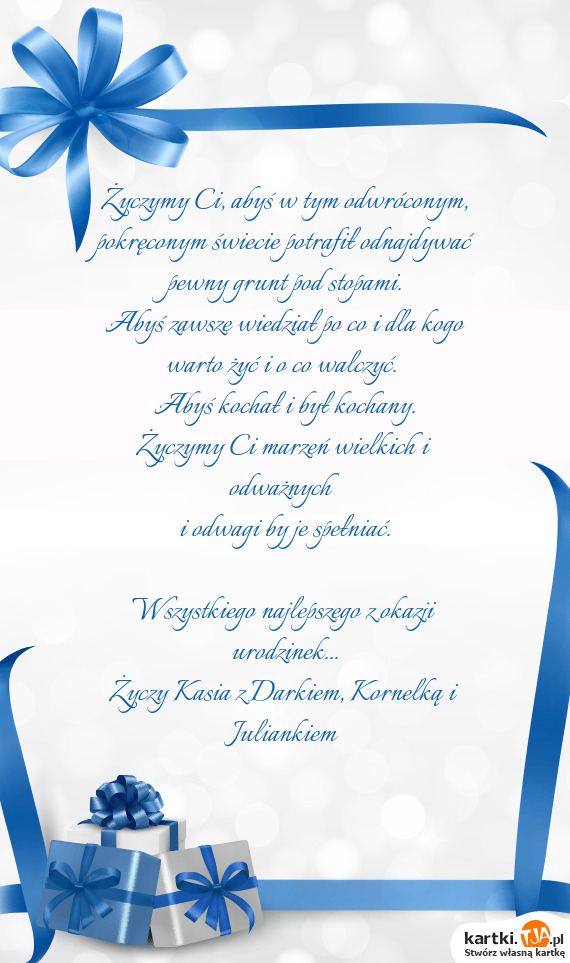 Życzymy Ci, abyś w tym odwróconym,
pokręconym świecie potrafił odnajdywać
pewny grunt pod stopami.
Abyś zawsze wiedział po co i dla kogo
warto żyć i o co walczyć.
Abyś kochał i był kochany.
Życzymy Ci marzeń wielkich i
odważnych
i odwagi by je spełniać.
Wszystkiego najlepszego z okazji
urodzinek...
Życzy Kasia z Darkiem, Kornelką i
Juliankiem
kartki.TJA.pl
Stwórz własną kartkę